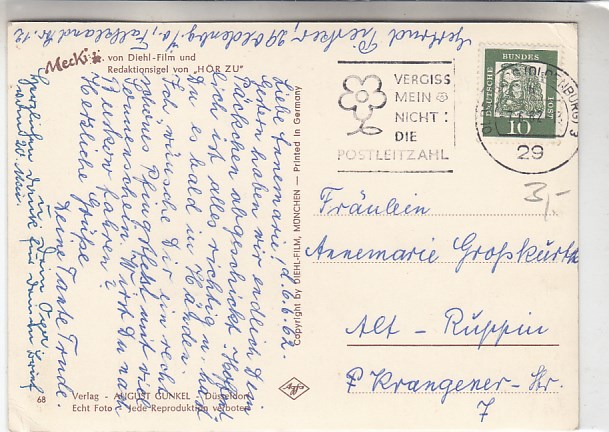 Gertrud Pierker, 29 Oldenbg. i/o, Falklandstr. 12
Mecki
von Diehl-Film und
Redaktionsigel von „HÖR ZU"
Liebe Annemarie! d. 6.6.62.
Gestern haben wir endlich Dein
Päckchen abgeschickt. Hoffent-
lich ist alles richtig u. hast
Du es bald in Händen.
Ich wünsche Dir ein recht
schönes Pfingstfest mit viel
Sonnenschein. Wirst Du nach
Buckow fahren?
Herzliche Grüße
Deine Tante Trude.
Herzlichen Dank für Deinen Brief
vom 20. Mai.
Copyright by DIEHL-FILM, MÜNCHEN — Printed in Germany
VERGISS
MEIN
NICHT:
DIE
POSTLEITZAHL
DEUTSCHE
BUNDES
POST
10
29
3,-
Fräulein
Annemarie Großkurth
Alt - Ruppin
P. Krangener-Str.
7
Agfa
68
Verlag - AUGUST GUNKEL - Düsseldorf
Echt Foto - Jede Reproduktion verboten